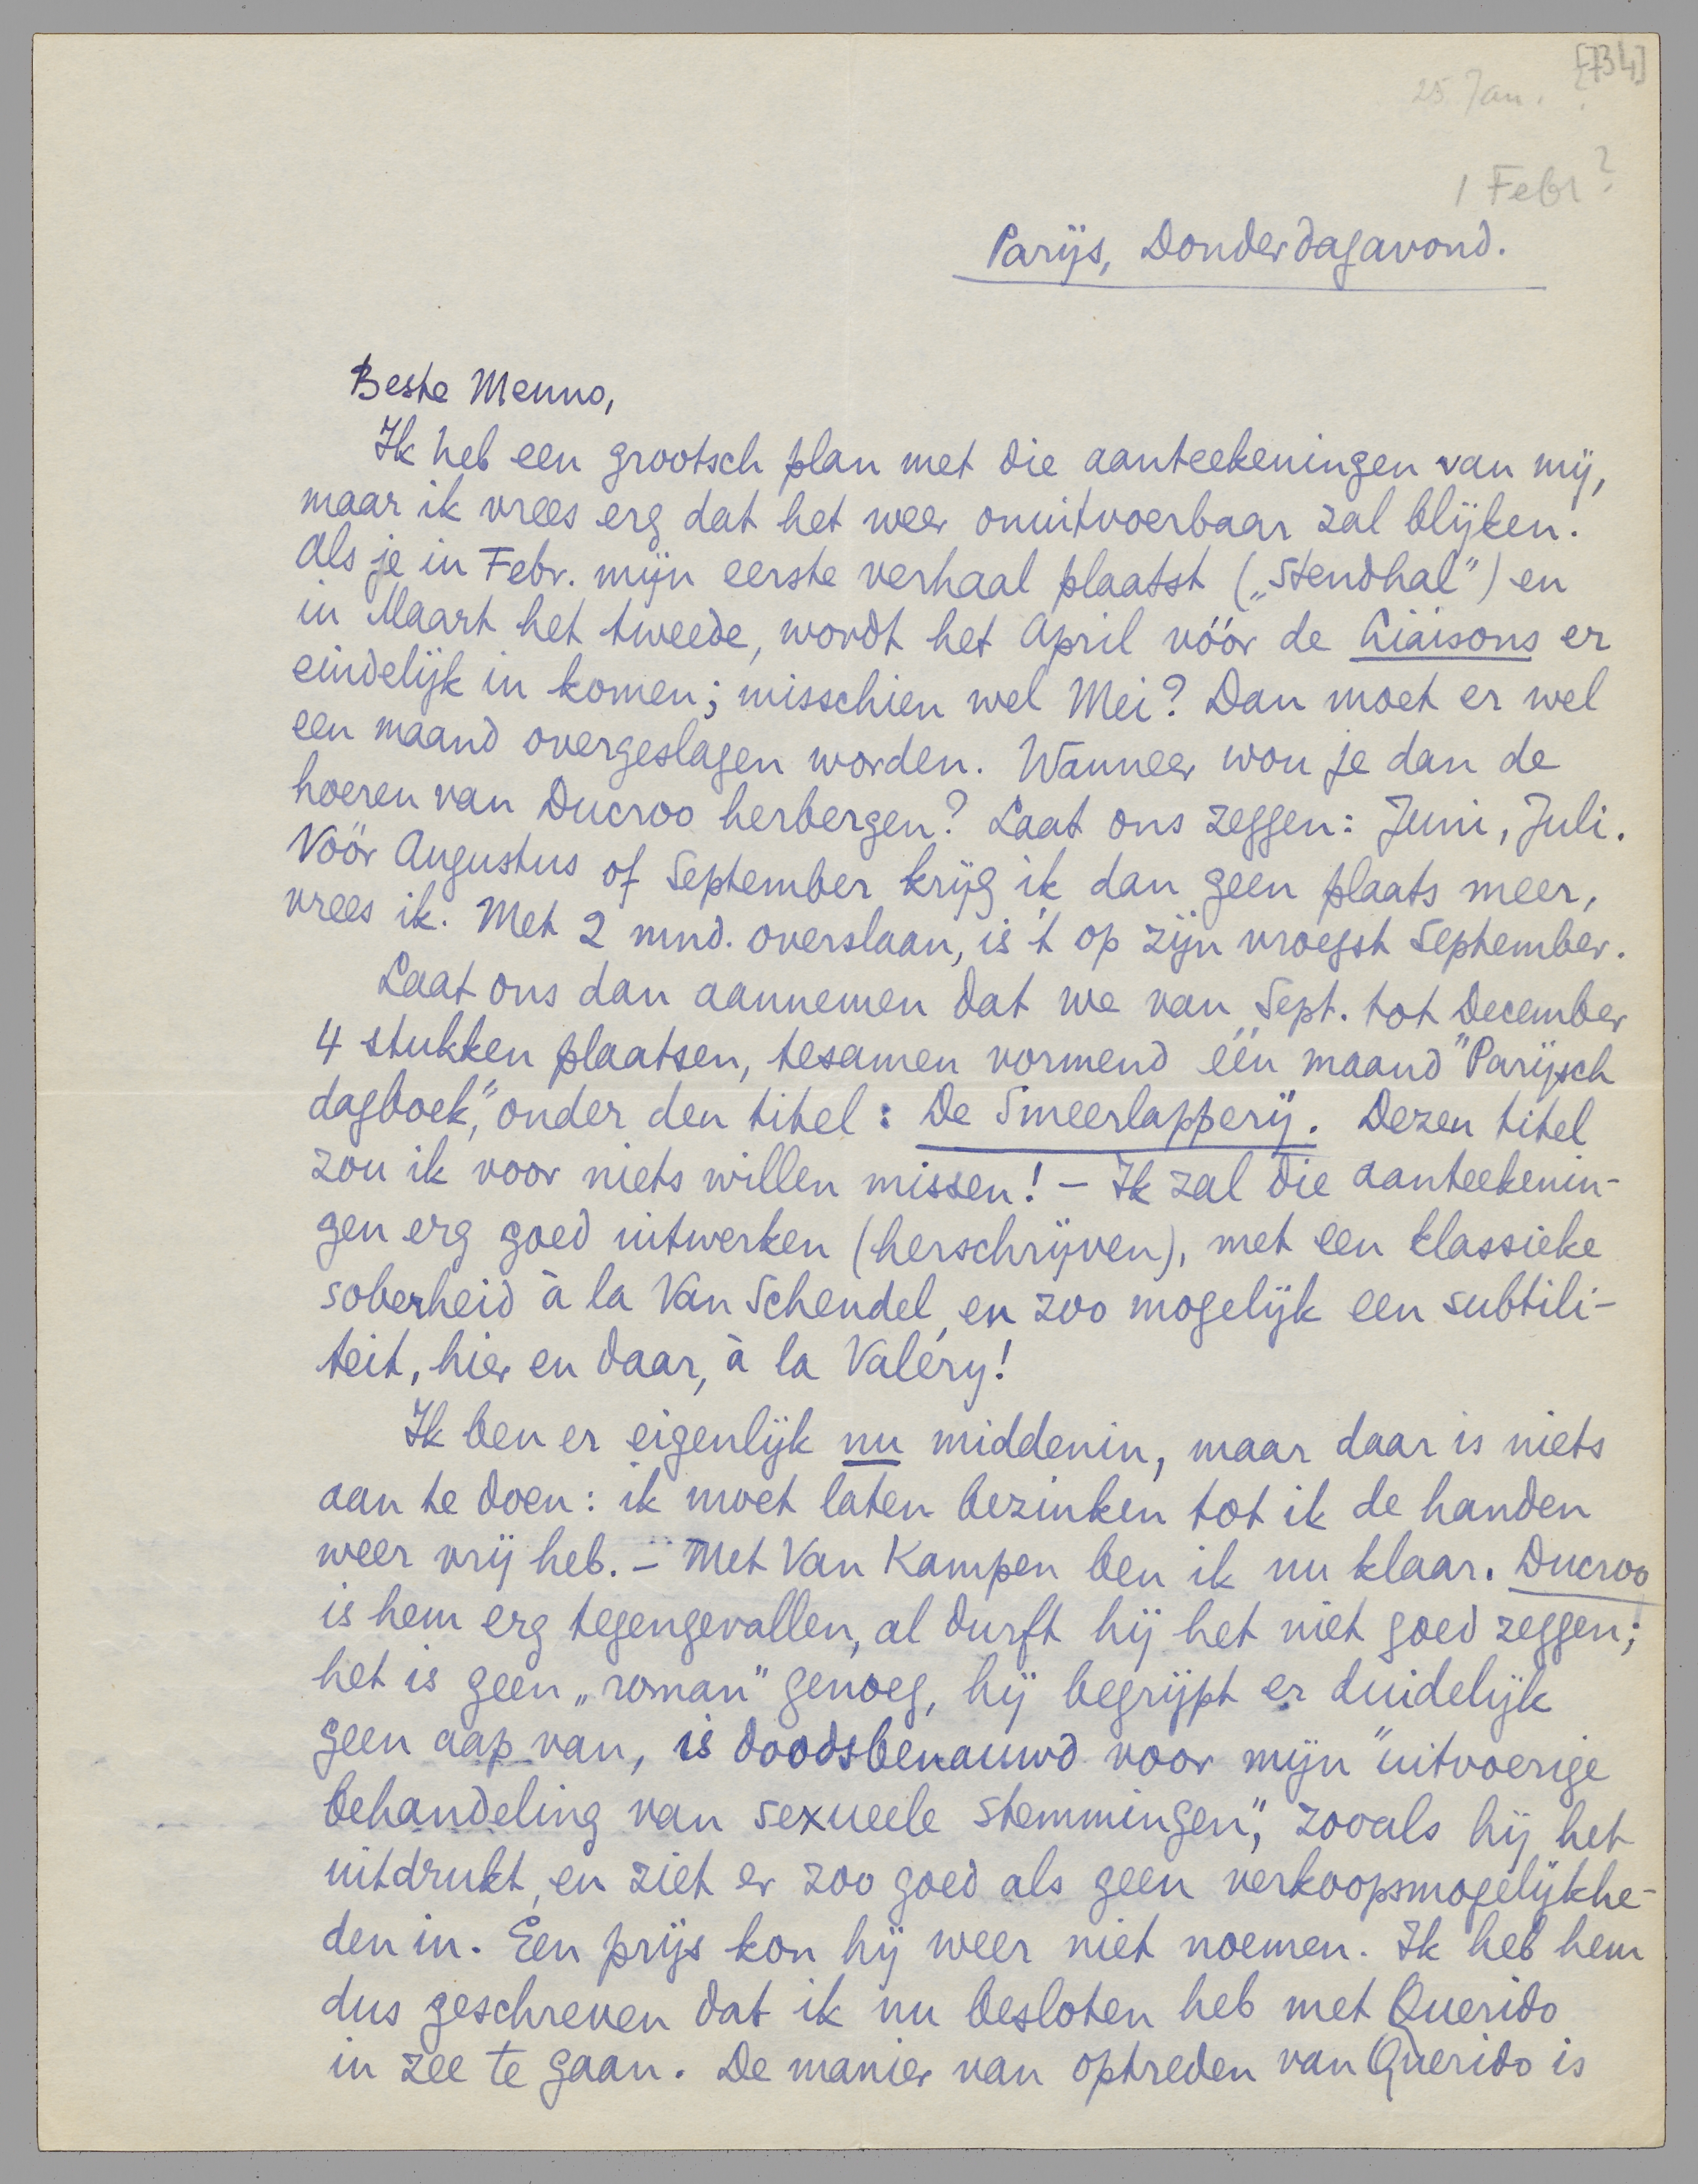 [734]
25 Jan. ?
1 Febr?
Parijs, Donderdagavond.
Beste Menno,
Ik heb een grootsch plan met die aanteekeningen van mij,
maar ik vrees erg dat het weer onuitvoerbaar zal blijken.
Als je in Febr. mijn eerste verhaal plaatst („Stendhal") en
in Maart het tweede, wordt het April vóór de Liaisons er
eindelijk in komen; misschien wel Mei? Dan moet er wel
een maand overgeslagen worden. Wanneer wou je dan de
hoeren van Ducroo herbergen? Laat ons zeggen: Juni, Juli.
Vóór Augustus of September krijg ik dan geen plaats meer,
vrees ik. Met 2 mnd. overslaan, is 't op zijn vroegst September.
Laat ons dan aannemen dat we van Sept. tot December
4 stukken plaatsen, tesamen vormend één maand "Parijsch
dagboek", onder den titel: De Smeerlapperij. Dezen titel
zou ik voor niets willen missen! – Ik zal die aanteekenin-
gen erg goed uitwerken (herschrijven), met een klassieke
soberheid à la Van Schendel, en zoo mogelijk een subtili-
teit, hier en daar, à la Valéry!
Ik ben er eigenlijk nu middenin, maar daar is niets
aan te doen: ik moet laten bezinken tot ik de handen
weer vrij heb. – Met Van Kampen ben ik nu klaar. Ducroo
is hem erg tegengevallen, al durft hij het niet goed zeggen;
het is geen „roman" genoeg, hij begrijpt er duidelijk
geen aap van, is doodsbenauwd voor mijn "uitvoerige
behandeling van sexueele stemmingen", zooals hij het
uitdrukt, en ziet er zoo goed als geen verkoopsmogelijkhe-
den in. Een prijs kon hij weer niet noemen. Ik heb hem
dus geschreven dat ik nu besloten heb met Querido
in zee te gaan. De manier van optreden van Querido is